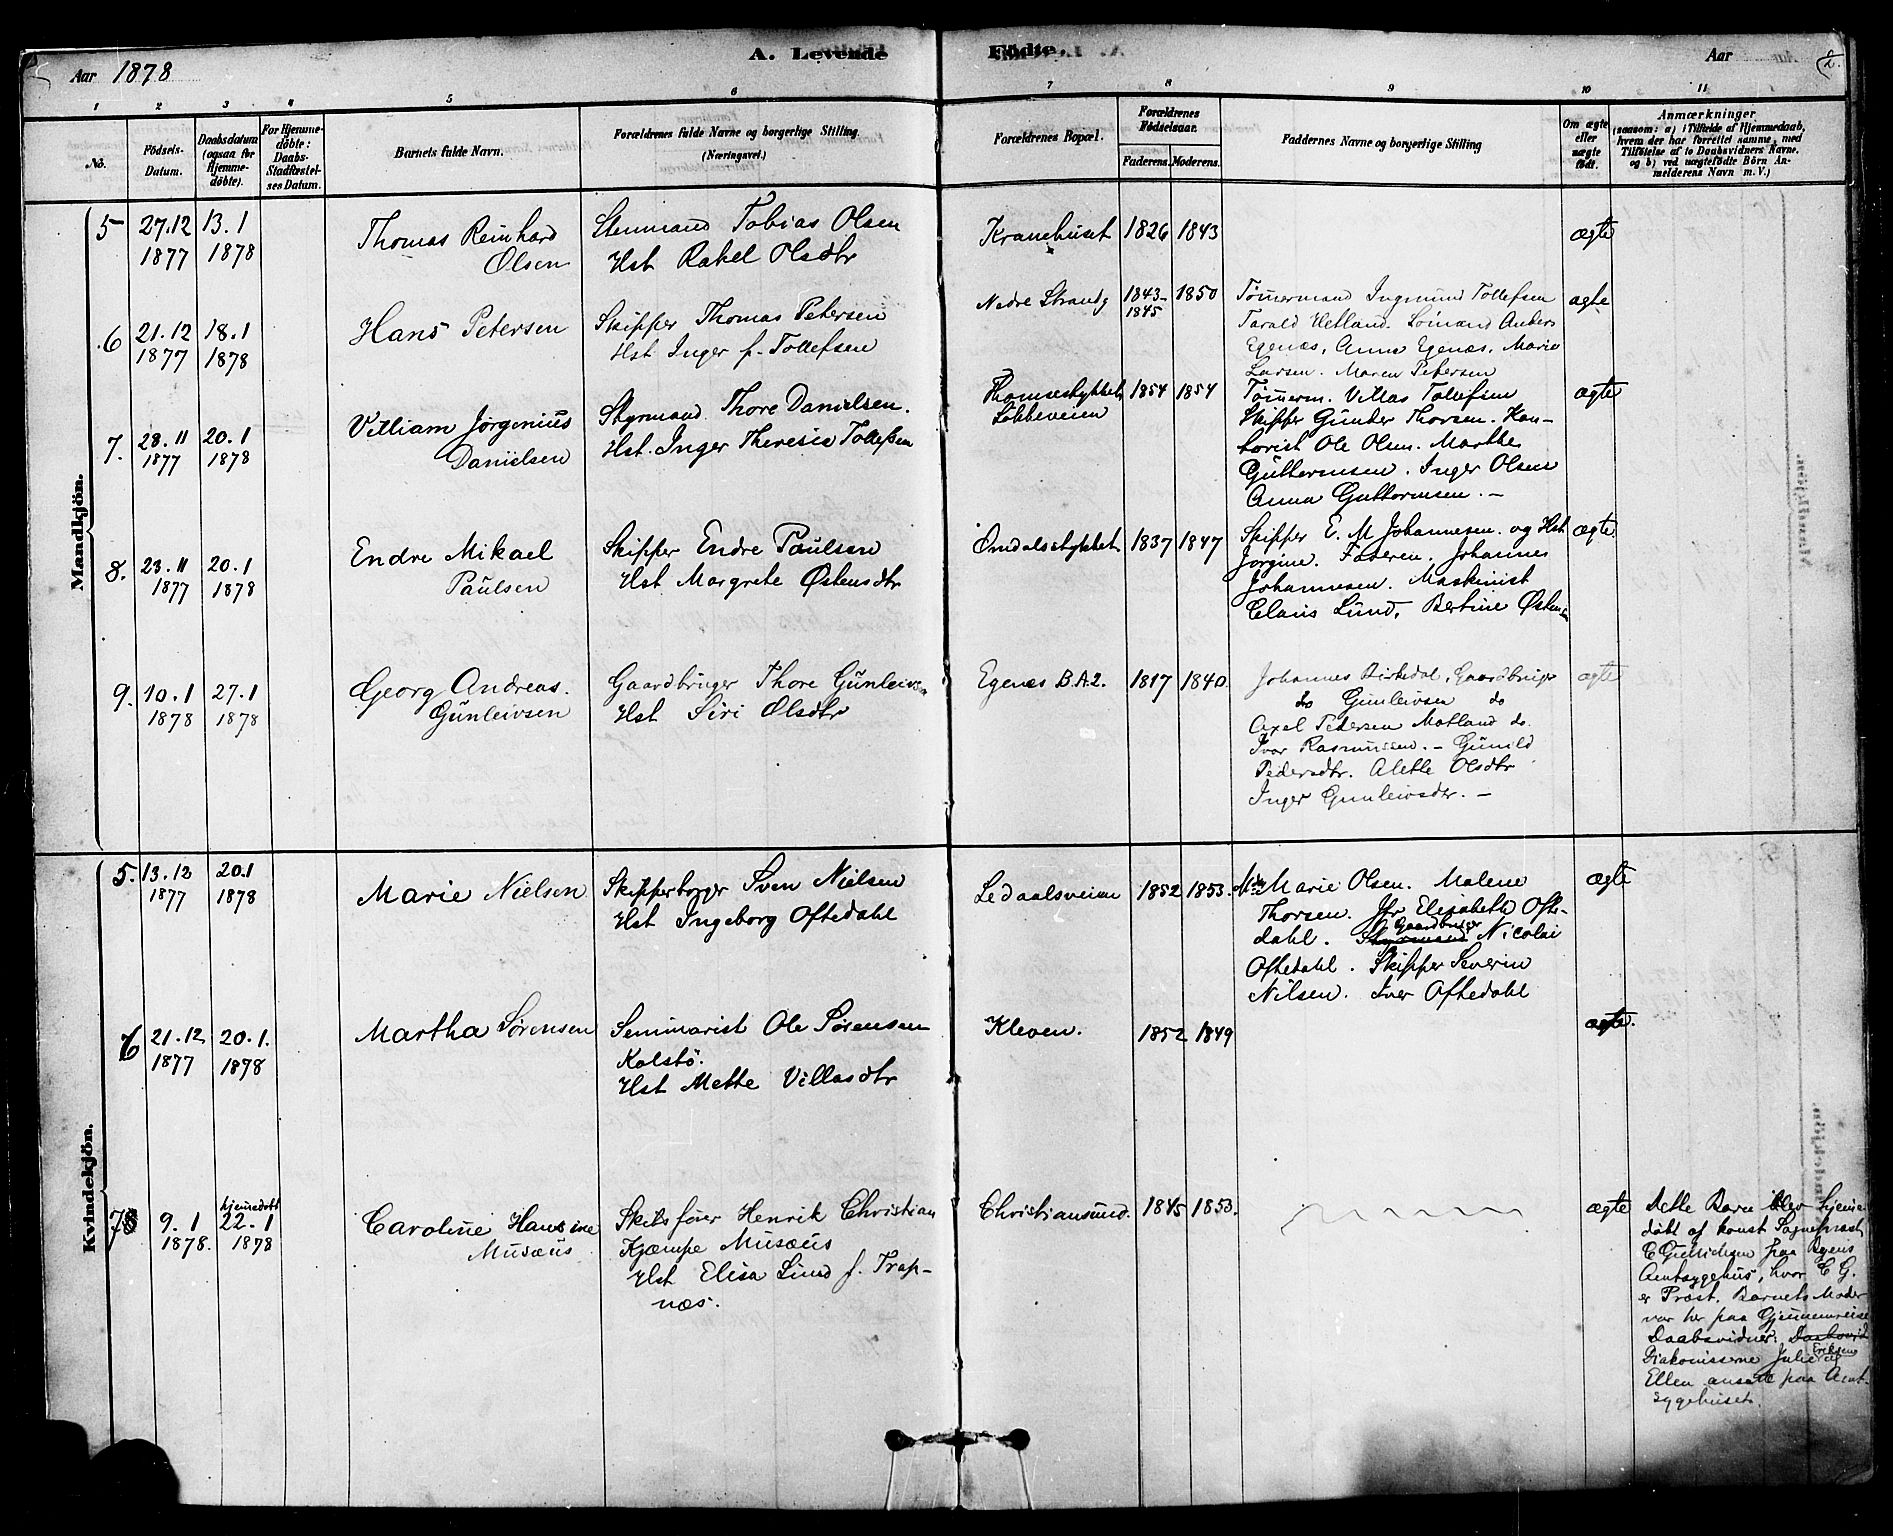 A. Levende Födte.
Aar 1878
Aar
2.
1 2 3 4 5 6 7 8 9 10 11
No.
Födsels-
Datum.
Daabsdatum
(ogsaa for
Hjemme-
döbte).
For Hjemme-
döbte:
Daabs-
Stadfæstel-
ses Datum.
Barnets fulde Navn.
Forældrenes fulde Navne og borgerlige Stilling.
(Næringsvei.)
Forældrenes Bopæl.
Forældrenes
Födselsaar.
Faderens. Moderens.
Faddernes Navne og borgerlige Stilling
Om ægte
eller
uægte
födt.
Anmærkninger
(saasom: a) i Tilfælde af Hjemmedaab,
hvem der har forrettet samme, med
Tilföielse af to Daabsvidners Navne,
og b) ved uægtefödte Börn An-
melderens Navn m. V.)
Mandkjön.
5 27.12 1877
13.1 1878
Thomas Reinhard
Olsen
Stenmand Tobias Olsen
Hst Rakel Olsdtr
Kranehuset 1826 1843
ægte
6 21.12 1877
18.1 1878
Hans Petersen
Skipper Thomas Petersen
Hst. Inger f. Tollefsen
Nedre Strandg 1843- 1845 1850
Tømermand Ingmund Tollefsen
Tarald Hetland. Loimand Anders
Egenæs, Anna Egenæs. Maria
Larsen. Maren Petersen
ægte
7. 28.11 1877
20.1 1878
Villiam Jørgenius
Danielsen
Styrmand Thore Danielsen.
Hst. Inger Theresie Tollefsen
Thomsestykket
Løkkeveien 1854 1854
Tømerm. Villas Tollefsen
Skipper Gunder Thorsen. Kon-
torist Ole Olsen. Marthe
Guttormsen. Inger Olsen
Anna Guttormsen. –
ægte
8. 23.11 1877
20.1 1878
Endre Mikael
Paulsen
Skipper Endre Paulsen
Hst Margrete Østensdtr
Omdalsstykket 1837 1847
Skipper E. M Johannesen. og Hst
Jorgine. Faderen. Johannes
Johannesen. Maskinist
Claus Lund, Bertine Østensen
ægte
9. 10.1 1878
27.1 1878
Georg Andreas.
Gunleivsen
Gaardbruger Thore Gunleivsen
Hst Siri Olsdtr
Egenæs B.A2. 1817 1840
Johannes Birkedal, Gaardbruger
do Gunleivsen do
Axel Pedersen Motland do.
Ivar Rasmussen. – Gunild
Pedersdtr. Alette Olsdtr
Inger Gunleivsdtr. –
ægte
Kvindekjön.
5. 13.12 1877
20.1 1878
Marie Nielsen
Skipperborger Sven Nielsen
Hst Ingeborg Oftedahl
Ledaalsveien 1852 1853.
Marie Olsen. Malene
Thorsen. Jfr Elisabeth Ofte-
dahl. Styrmand Gaardbruger Nicolai
Oftedahl. Skipper Severin
Nilsen. Iver Oftedahl
ægte
6 21.12 1877
20.1. 1878
Martha Sørensen
Seminarist Ole Sørensen
Kolstø.
Hst Mette Villasdtr
Kleven. 1852 1849
ægte.
7 9.1 1878.
hjemmedøbt
22.1 1878
Caroline Hansine
Musæus
Skibsfører Henrik Christian
Kjæmpe Musæus
Hst Elisa Lund f. Trap-
næs.
Christiansund. 1845 1853.
ægte
Dette Barn blev hjemme-
døbt af konst Sognepræst
C Gulliksen paa Byens
Amtssygehus, hvor C G.
er Præst. Barnets Moder
var her paa Gjennemreise
Daabsvidner: Daabsvid
Diakonisserne Julie Eriksen og
Ellen ansatt paa Amt-
sygehuset.